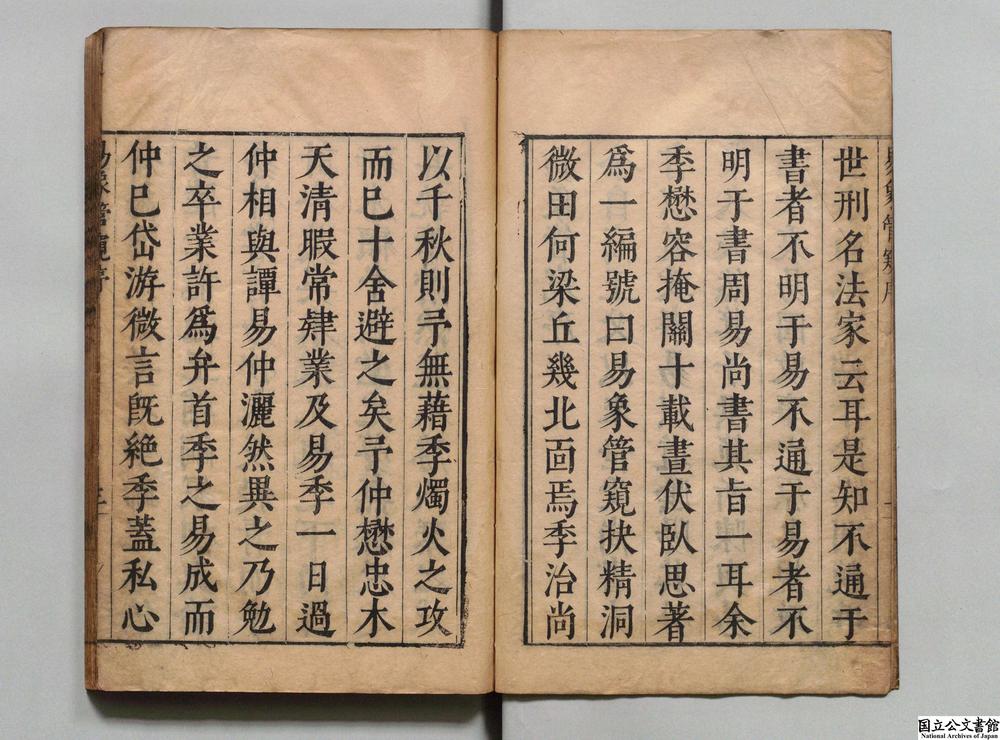 世刑名法家云耳是知不通于
書者不明于易不通于易者不
明于書周易尚書其旨一耳余
季懋容掩關十載晝伏臥思著
爲一編號曰易象管窺抉精洞
微田何梁丘幾北面焉季治尚
以千秋則予無藉季燭火之攻
而已十舍避之矣予仲懋忠木
天清暇常肄業及易季一日過
仲相與譚易仲灑然異之乃勉
之卒業許爲弁首季之易成而
仲巳岱游微言旣絶季蓋私心
易象管窺序
国立公文書館
National Archives of Japan